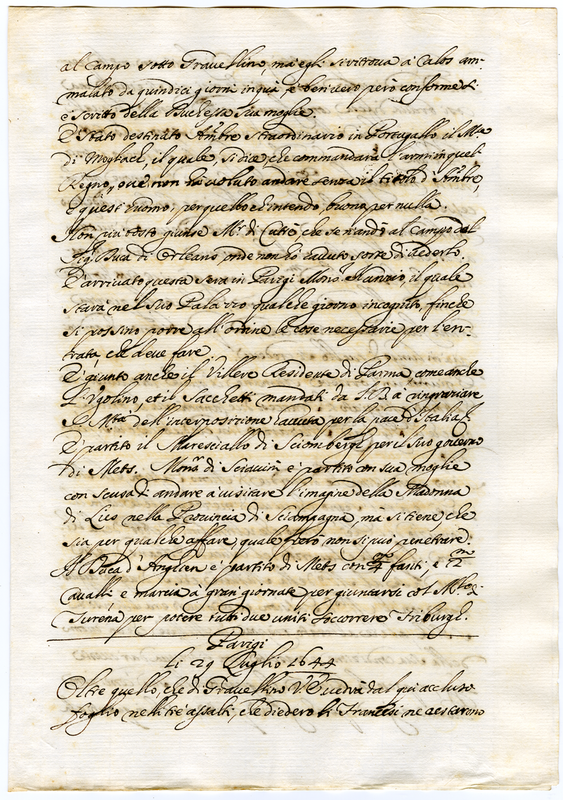 al Campo sotto Gravelline, mà egli si ritrova à Cales am-
malato da quindici giorni in quà, e ben vero però conforme si
è scritto della Duchessa sua moglie.
È stato destinato Ambre straordinario in Portugallo il Ma
di il quale, si dice, che commandarà l'armi in quel
Regno, ove non hà voluto andare senza il titolo d'Ambre,
è quest'uomo, per quello ch'intendo, buono per nulla.
Non più tosto giunse Mr di che se n'andò al Campo dal
Sigr Duca di Orleans, onde non hò veduto
È arrivato questa sera in Parigi Monsr Nunzio, il quale
starà nel suo Palazzo qualche giorno incognito, finche
si possino porre all'ordine le cose necessarie per l'en-
trata, che deve fare.
È giunto anche il Villeré Residente di Parma come anche
L'Ugolino, et il Sacchetti mandati da à ringraziare
Mtà dell'interposizione havuta per la pace d'Italia
È partito il Maresciallo di Sciombergh per il suo governo
di Mets. Monr di è partito con sua moglie
con scusa d'andare à visitare l'imagine della Madonna
di nella Provincia di Sciampagna, mà si tiene che
sia per qualche affare, quale però non si può penetrare.
Il Duca d'Anghien è partito di Mets con 4m fanti, e 2m
cavalli e marcia à gran giornate per giuntarsi col
Turena per potere tutti due uniti soccorrere Friburgh.
Parigi
li 29 Luglio 1644
Oltre quello, che di Gravelline V.S. vedrà dal qui accluso
foglio nelli tre assalti, che diedero li Francesi ne restarono